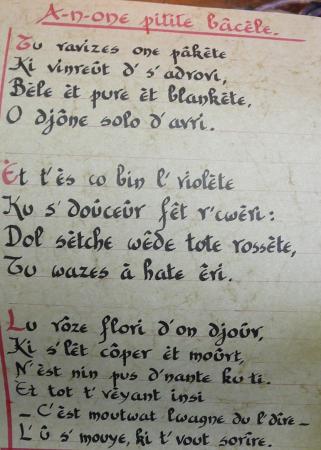 A-n-one pitite bâcèle.
Tu ravizes one pâkète
Ki vinreût d' s'adrovi,
Bèle èt pure èt blankète,
O djône solo d'avri.
Èt t'ès co bin l' violète
Ku s' doûceûr fêt r'cwèri :
Dol sètche wêde tote rossète,
Tu wazes à hate êri.
Lu rôze flori d'on djoûr,
Ki s' lêt côper èt moûrt,
N'èst nin pus d'nante ku ti.
Et tot t' vèyant insi
— C'èst moutwat lwagne du l' dîre —
L' û s' mouye, ki t' vout sorîre.